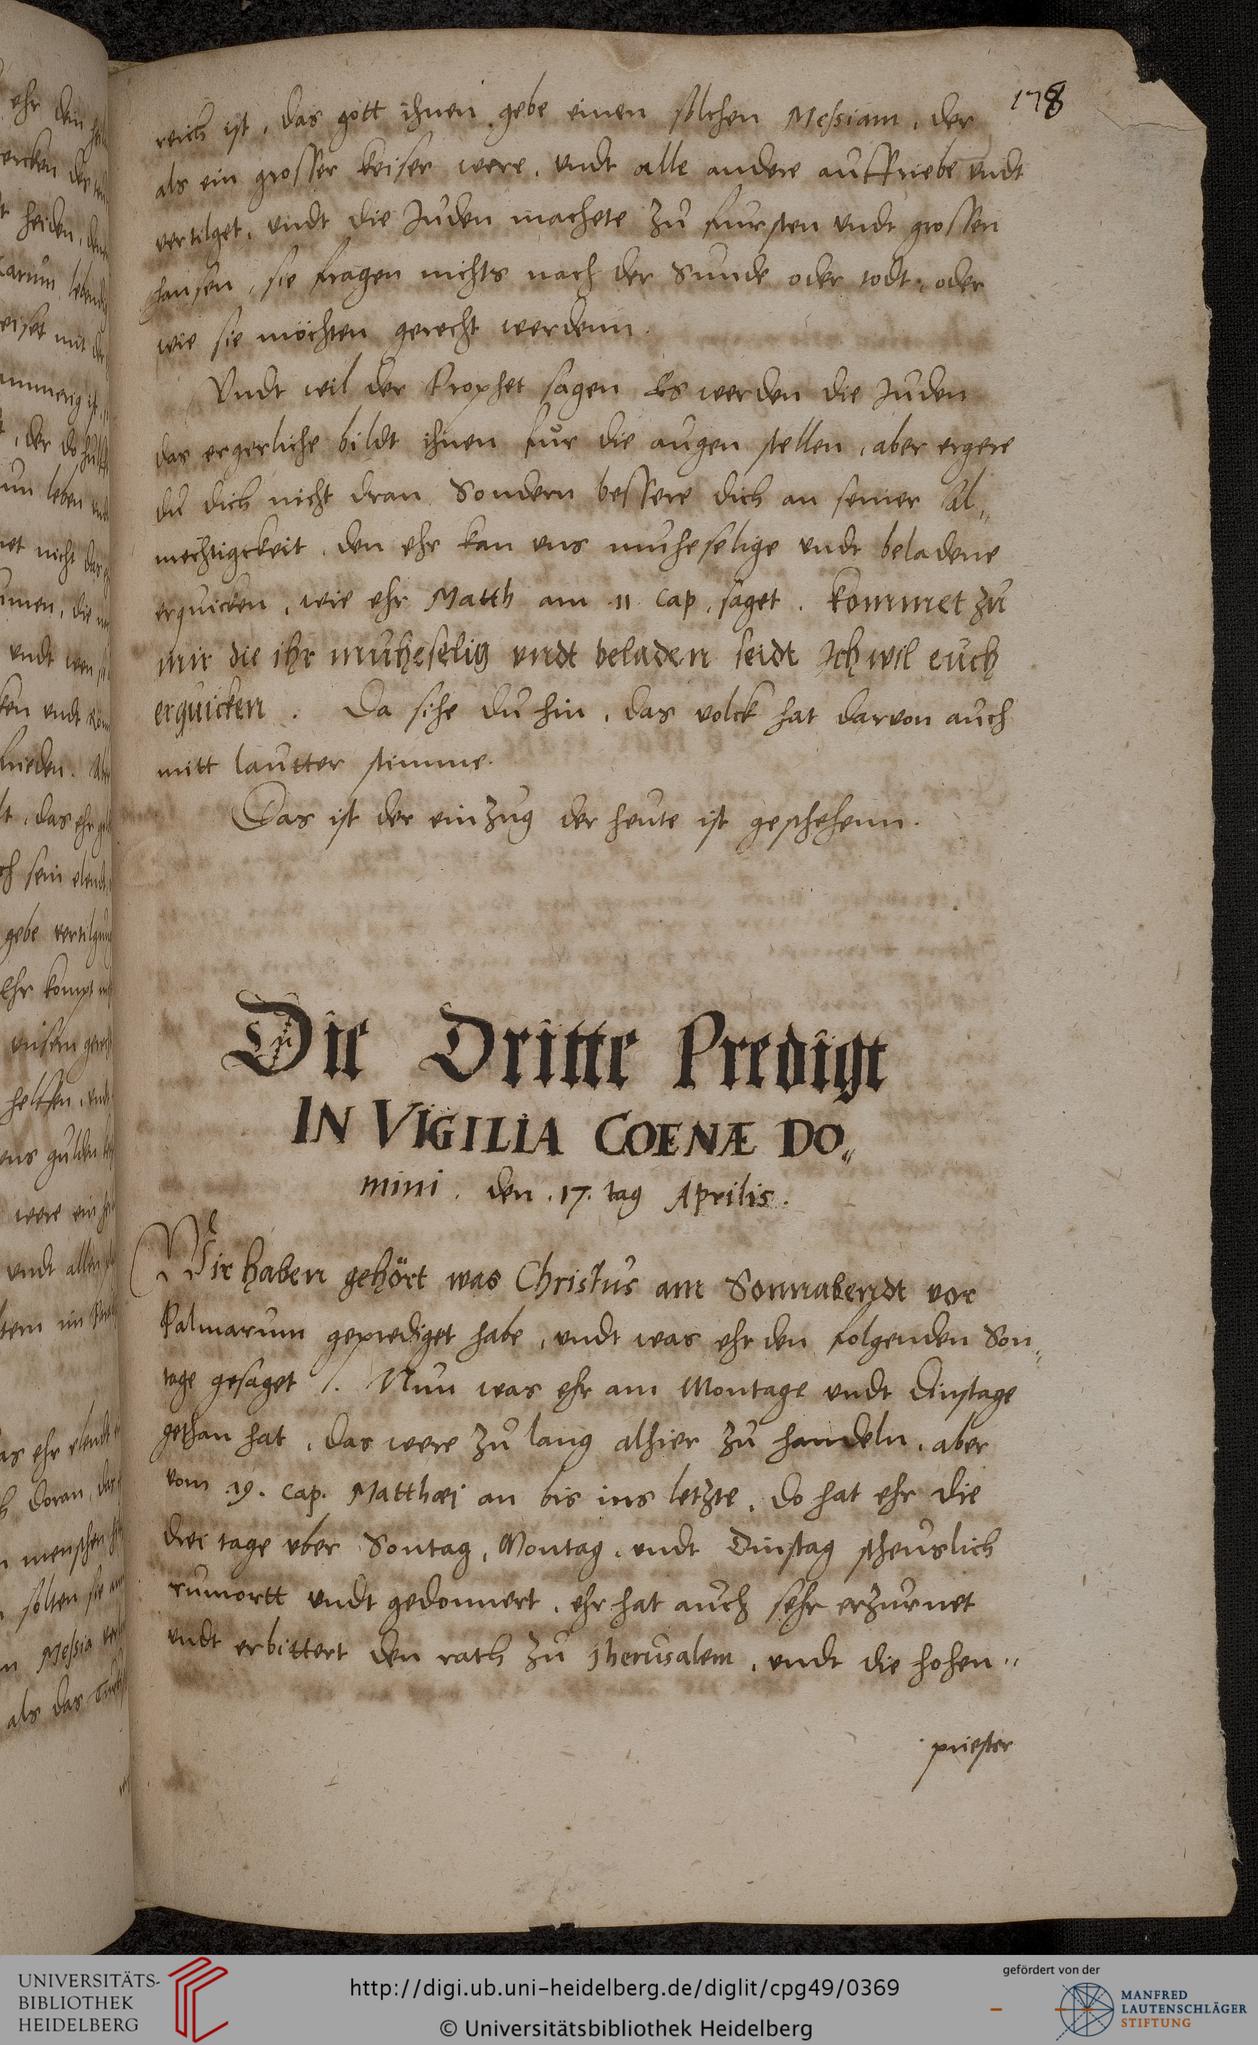 178
reich ist, das gott ihnen gebe einen solchen Messiam, der
als ein grosser keiser were, undt alle andere auffriebe undt
vertilget, undt die Juden machete zu fursten undt grossen
hansen, sie fragen nichts nach der Sunde oder todt, oder
wie sie möchten gerecht werdenn.
Undt wil der Prophet sagen Es werden die Juden
das ergerliche bildt ihnen fur die augen stellen, aber ergere
du dich nicht dran Sondern bessere dich an seiner Al„
mechtigckeit, den ehr kan uns muheselige undt beladene
erquicken, wie ehr Matth am 11 cap, saget. kommet zu
mir die ihr muheselig undt beladen seidt Ich wil euch
erquicken. Da sihe du hin, das volck hat darvon auch
mitt lautter stimme.
Das ist der einzug der heute ist geschehenn.
Die Dritte Predigt
IN VIGILIA COENÆ DO„
mini. den .17. tag Aprilis.
Wir haben gehört was Christus am Sonnabendt vor
Palmarum geprediget habe, undt was ehr den folgenden Son„
tage gesaget. Nun was ehr am Montage undt Dinstage
gethan hat, das were zu lang alhier zu handeln, aber
vom 19. cap. Matthæi an bis ins letzte, do hat ehr die
drei tage uber Sontag, Montag, undt Dinstag scheuslich
rumortt undt gedonnert, ehr hat auch sehr erzurnet
undt erbittert den rath zu Jherusalem, undt die hohen„
priester
UNIVERSITÄTS-
BIBLIOTHEK
HEIDELBERG
http://digi.ub.uni-heidelberg.de/diglit/cpg49/0369
© Universitätsbibliothek Heidelberg
gefördert von der
MANFRED
LAUTENSCHLÄGER
STIFTUNG